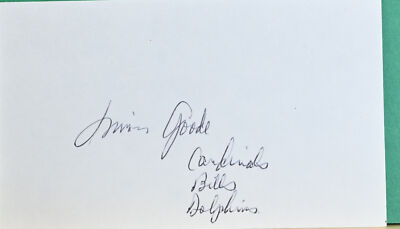 Irvin Goode
Cardinals
Bills
Dolphins